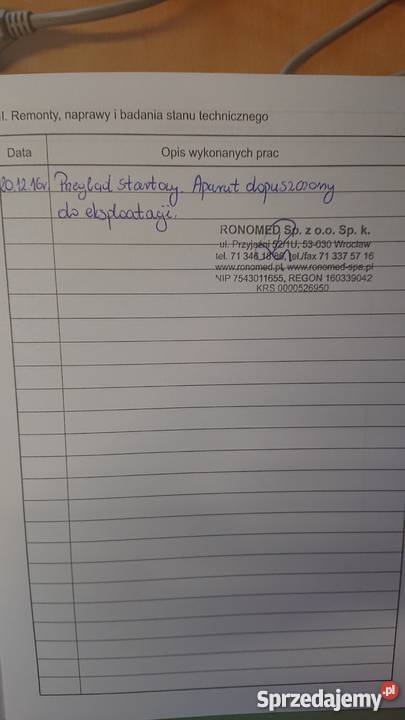 I. Remonty, naprawy i badania stanu technicznego
Data
Opis wykonanych prac
20.12.16r. Przegląd startowy. Aparat dopuszczony
do eksploatacji.
RONOMED Sp. z o.o. Sp. k.
ul. Przyjaźni 52/1U, 53-030 Wrocław
tel. 71 346 18 69, tel./fax 71 337 57 16
www.ronomed.pl, www.ronomed-spa.pl
NIP 7543011655, REGON 160339042
KRS 0000526950
Sprzedajemy.pl